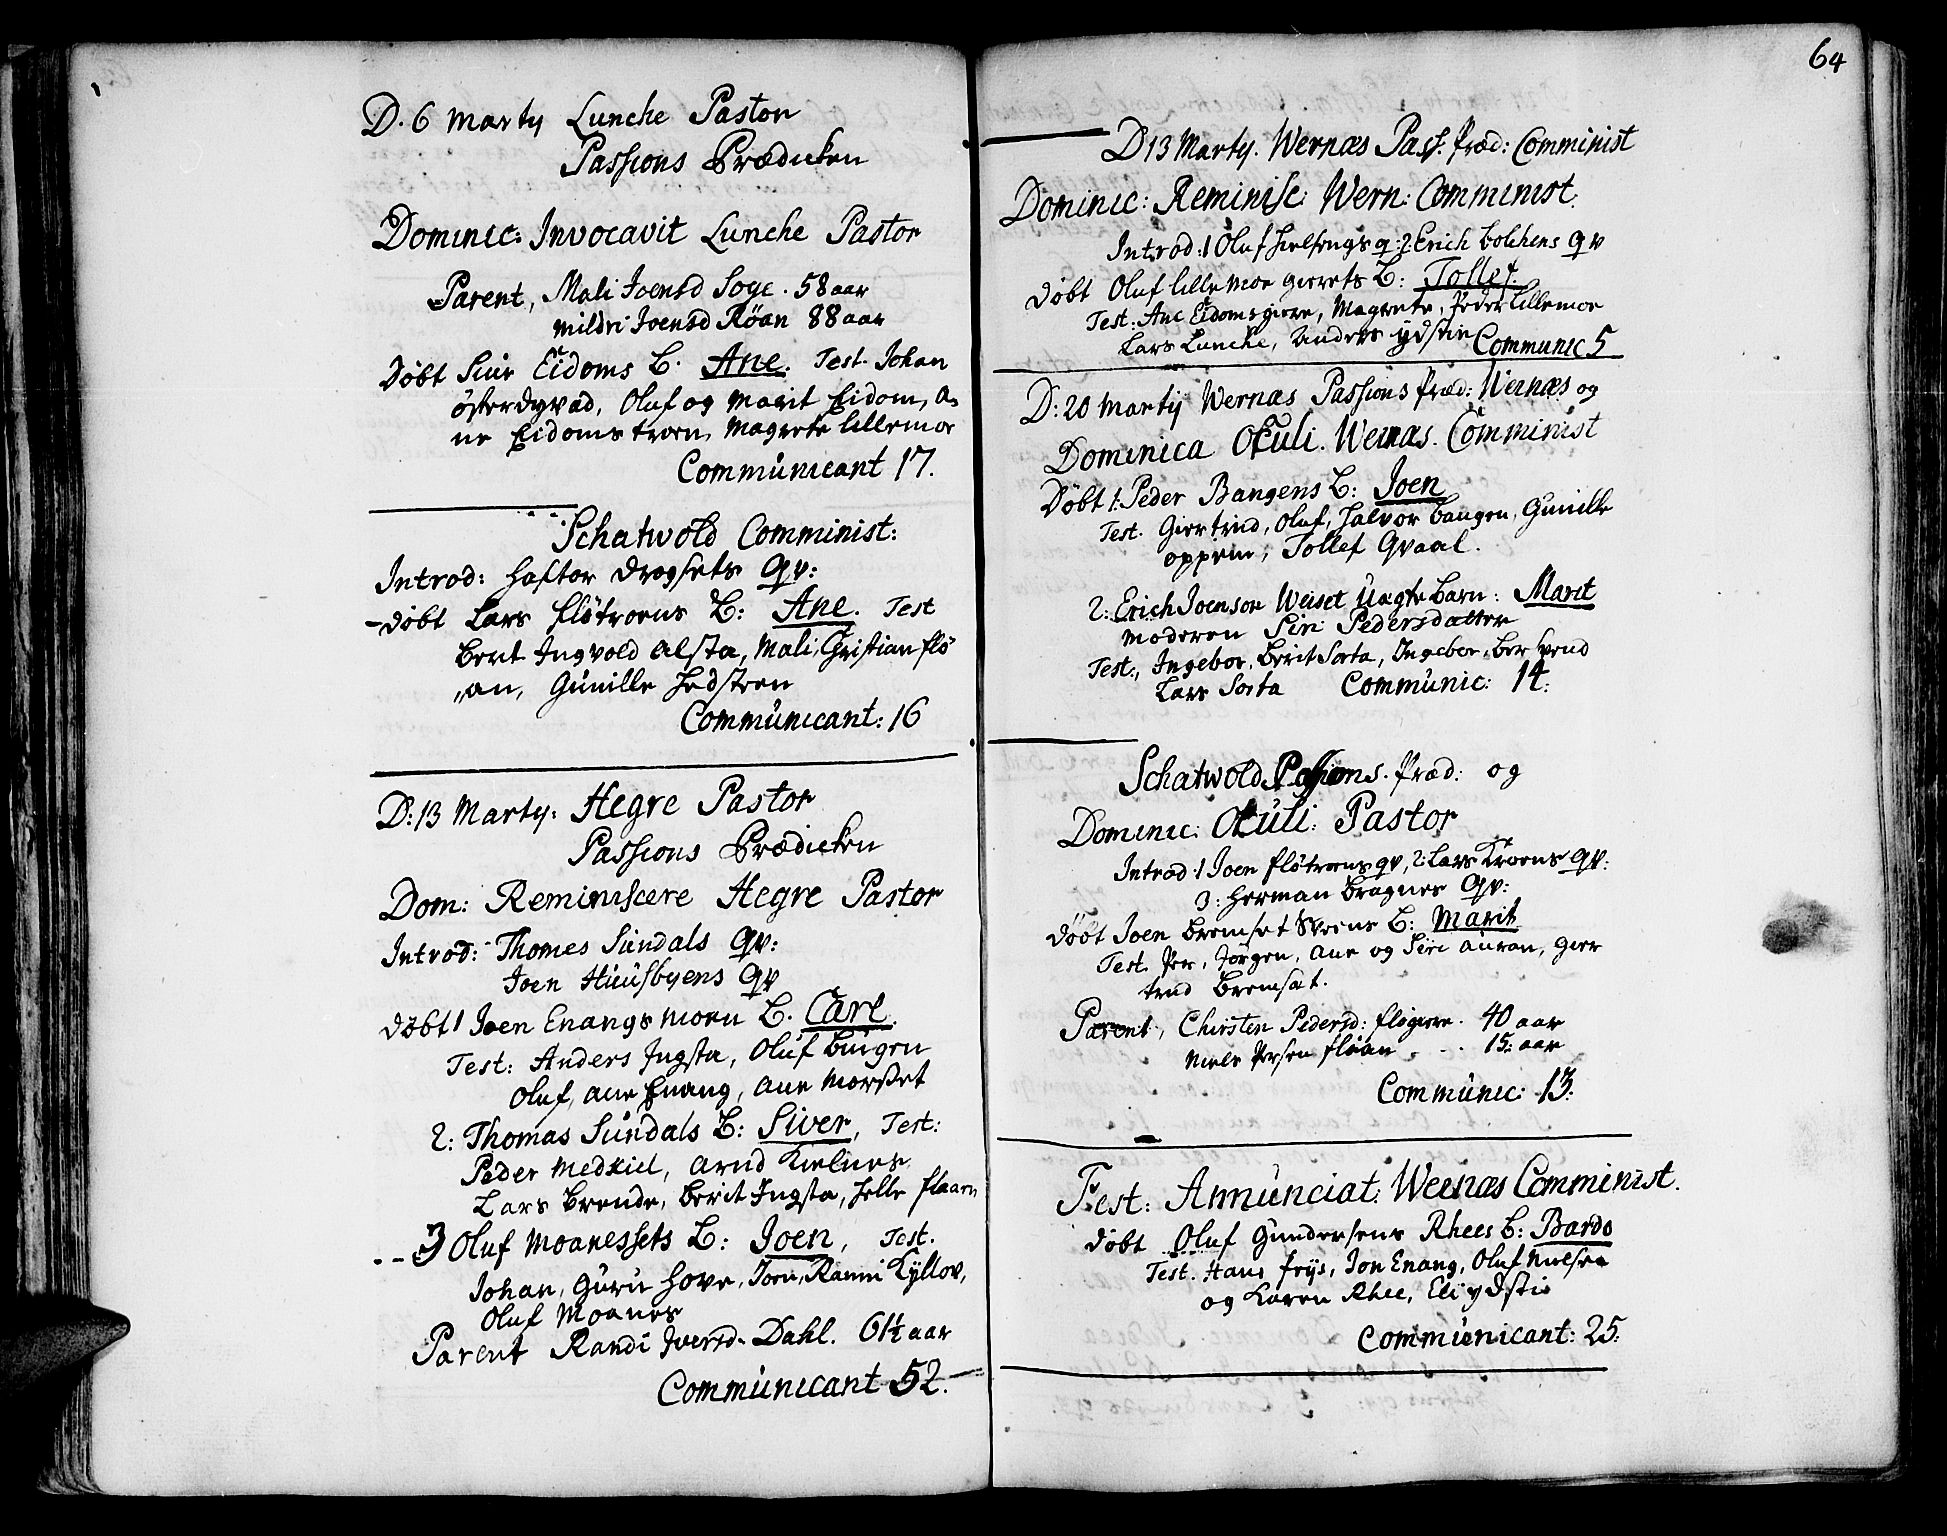 D. 6 Marty Lunche Pastor
Passions Prædicken
Dominic: Invocavit Lunche Pastor
Parent, Mali Joensd Soge. 58 aar
Mildri Joensd Röan 88 aar
Döbt Siur Eidoms B. Ane. Test. Johan
österdyvad, Oluf og Marit Eidom, A-
ne Eidomstroen, Magrete lillemoe
Communicant 17.
Schatwold Comminist:
Introd: Haftor Drogsets Qv:
Döbt Lars flötroens B: Ane. Test
Berit Ingvold Alsta, Mali, Christian flö
an, Gunille Hedstren
Communicant: 16
D: 13 Marty: Hegre Pastor
Passions Prædicken
Dom: Reminiscere Hegre Pastor
Introd: Thomes Sundals Qv:
Joen Huusbyens Qv
Döbt 1 Joen Enangs Moen B. Carl.
Test: Anders Ingsta, Oluf Bungen
Oluf, Ane Enang, Ane Morset
2: Thomas Sundals B: Siver, Test:
Peder Medkiel, Arnd Kielnes
Lars Brende, Berit Ingsta, Helle flaarn
3 Oluf Moanessets B: Joen, Test.
Johan, Guru Hove, Joen, Ranni Kyllov,
Oluf Moanes
Parent Randi Iversd. Dahl. 61½ aar
Communicant 52.
64
D 13 Marty. Wernæs Pass. Præd: Comminist
Dominic: Reminisc: Wern: Comminist.
Introd: 1 Oluf Hielsengs q: 2 Erich bolchens Qv
Döbt Oluf lille Moe gierets B: Tollef.
Test: Ane Eidomsgiere, Magrete, Peder Lillemoe
Lars Lunche, Anders ydstie Communic 5
D: 20 Marty Wernæs Passions Præd: Wernæs og
Dominica Okuli. Wernæs. Comminist
Döbt 1: Peder Bangens B: Joen
Test. Giertrud, Oluf, Halvor Bangen, Gunille
oppem, Tollef Qvaal.
2: Erich Joensen Weiset Uægte Barn: Marit
Moderen Siri Pedersdatter
Test:, Ingebor, Berit Sorta, Ingebor,
Lars Sorta Communic: 14:
Schatwold Passions. Præd: og
Dominic: Okuli: Pastor
Introd: 1 Joen flötroens qv, 2: Lars Kroens Qv:
3: Herman Bragnes Qv:
Döbt Joen Bremset Sveens B: Marit
Test. Per, Jörgen, Ane og Siri Auran, Gier
trud Bremset.
Parent, Chirsten Pedersd: flögiere. 40 aar
Niels Persen flöan . . . 15: aar
Communic: 13:
Fest: Annunciat: Wernæs Comminist.
Döbt Oluf Gundersens Rhees B: Bardo
Test. Hans friis, Jon Enang, Oluf Nielsen
og Karen Rhee, Eli ydsti
Communicant: 25: